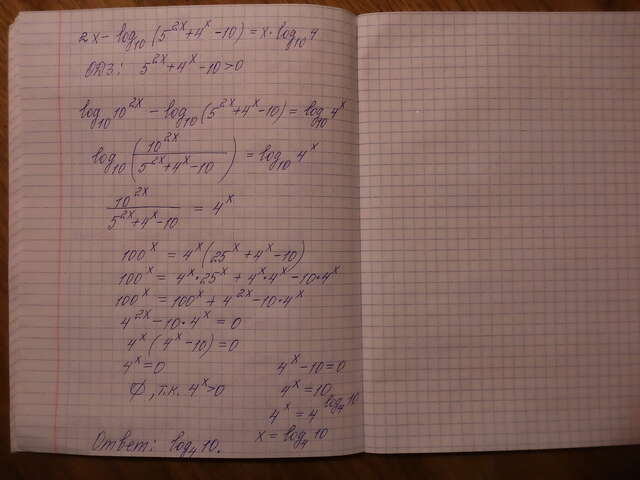 2x - log₁₀(5^{2x} + 4^x - 10) = x · log₁₀ 4
ОДЗ: 5^{2x} + 4^x - 10 > 0
log₁₀ 10^{2x} - log₁₀(5^{2x} + 4^x - 10) = log₁₀ 4^x
log₁₀(10^{2x} / (5^{2x} + 4^x - 10)) = log₁₀ 4^x
10^{2x} / (5^{2x} + 4^x - 10) = 4^x
100^x = 4^x (25^x + 4^x - 10)
100^x = 4^x · 25^x + 4^x · 4^x - 10 · 4^x
100^x = 100^x + 4^{2x} - 10 · 4^x
4^{2x} - 10 · 4^x = 0
4^x (4^x - 10) = 0
4^x = 0 4^x - 10 = 0
∅, т.к. 4^x > 0 4^x = 10
4^x = 4^{log₄ 10}
x = log₄ 10
Ответ: log₄ 10.